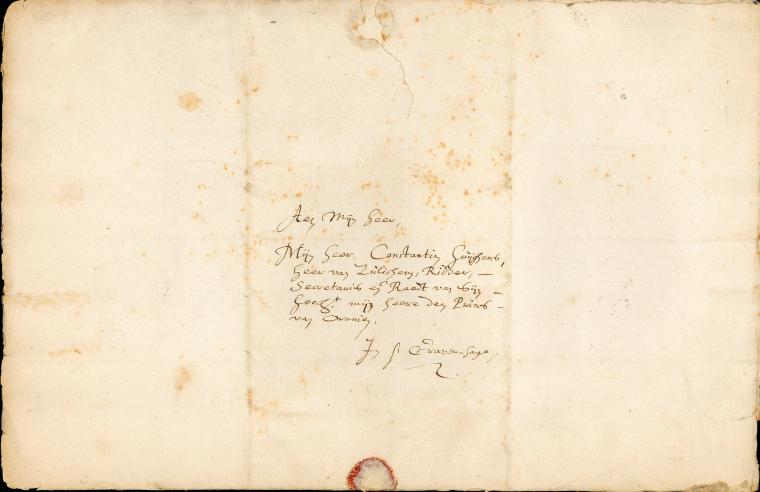 Aen Mijn heer,
Mijn heer, Constantin Huijgens,
heer van Zulichem, Ridder, —
Secretaris en Raedt van Sijn —
Hooch.t mijn heere den Prins —
van Oranien.
In s' Gravenhage,